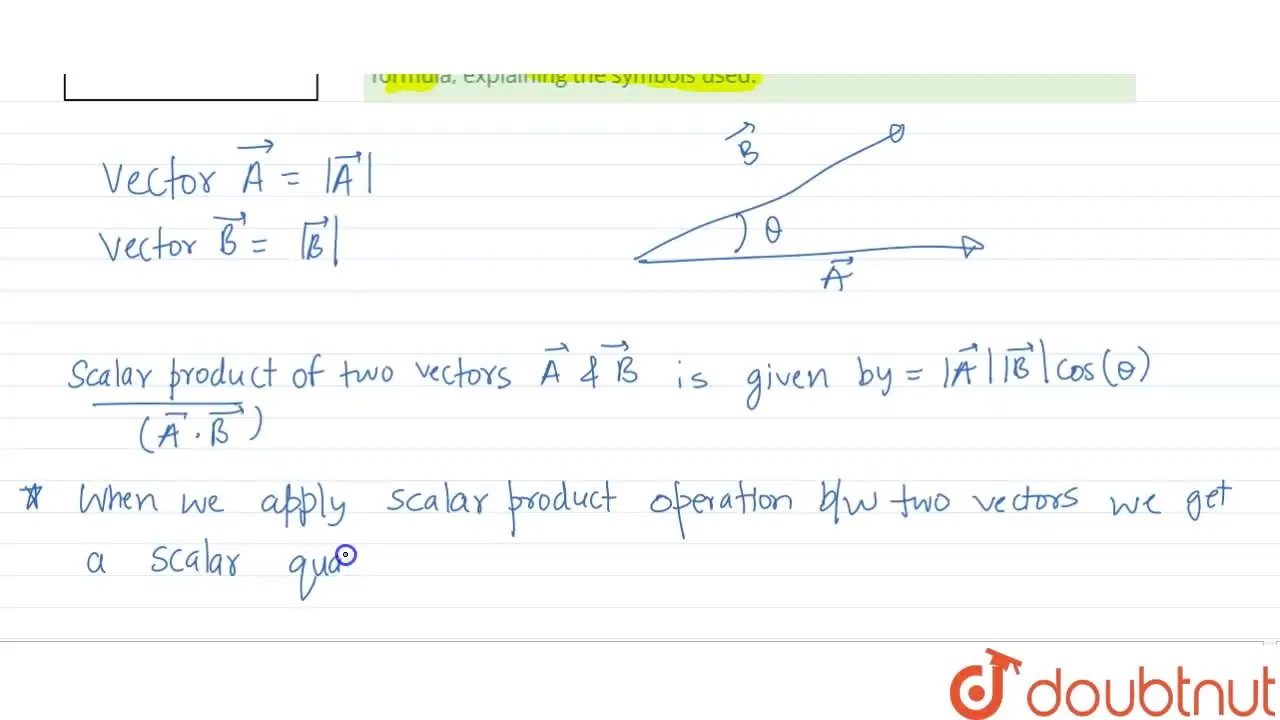 formula, explaining the symbols used.
Vector A⃗ = |A⃗|
Vector B⃗ = |B⃗|
B⃗
θ
A⃗
Scalar product of two vectors A⃗ & B⃗ is given by = |A⃗||B⃗|cos(θ)
(A⃗ · B⃗)
* When we apply scalar product operation b/w two vectors we get
a scalar qua
doubtnut